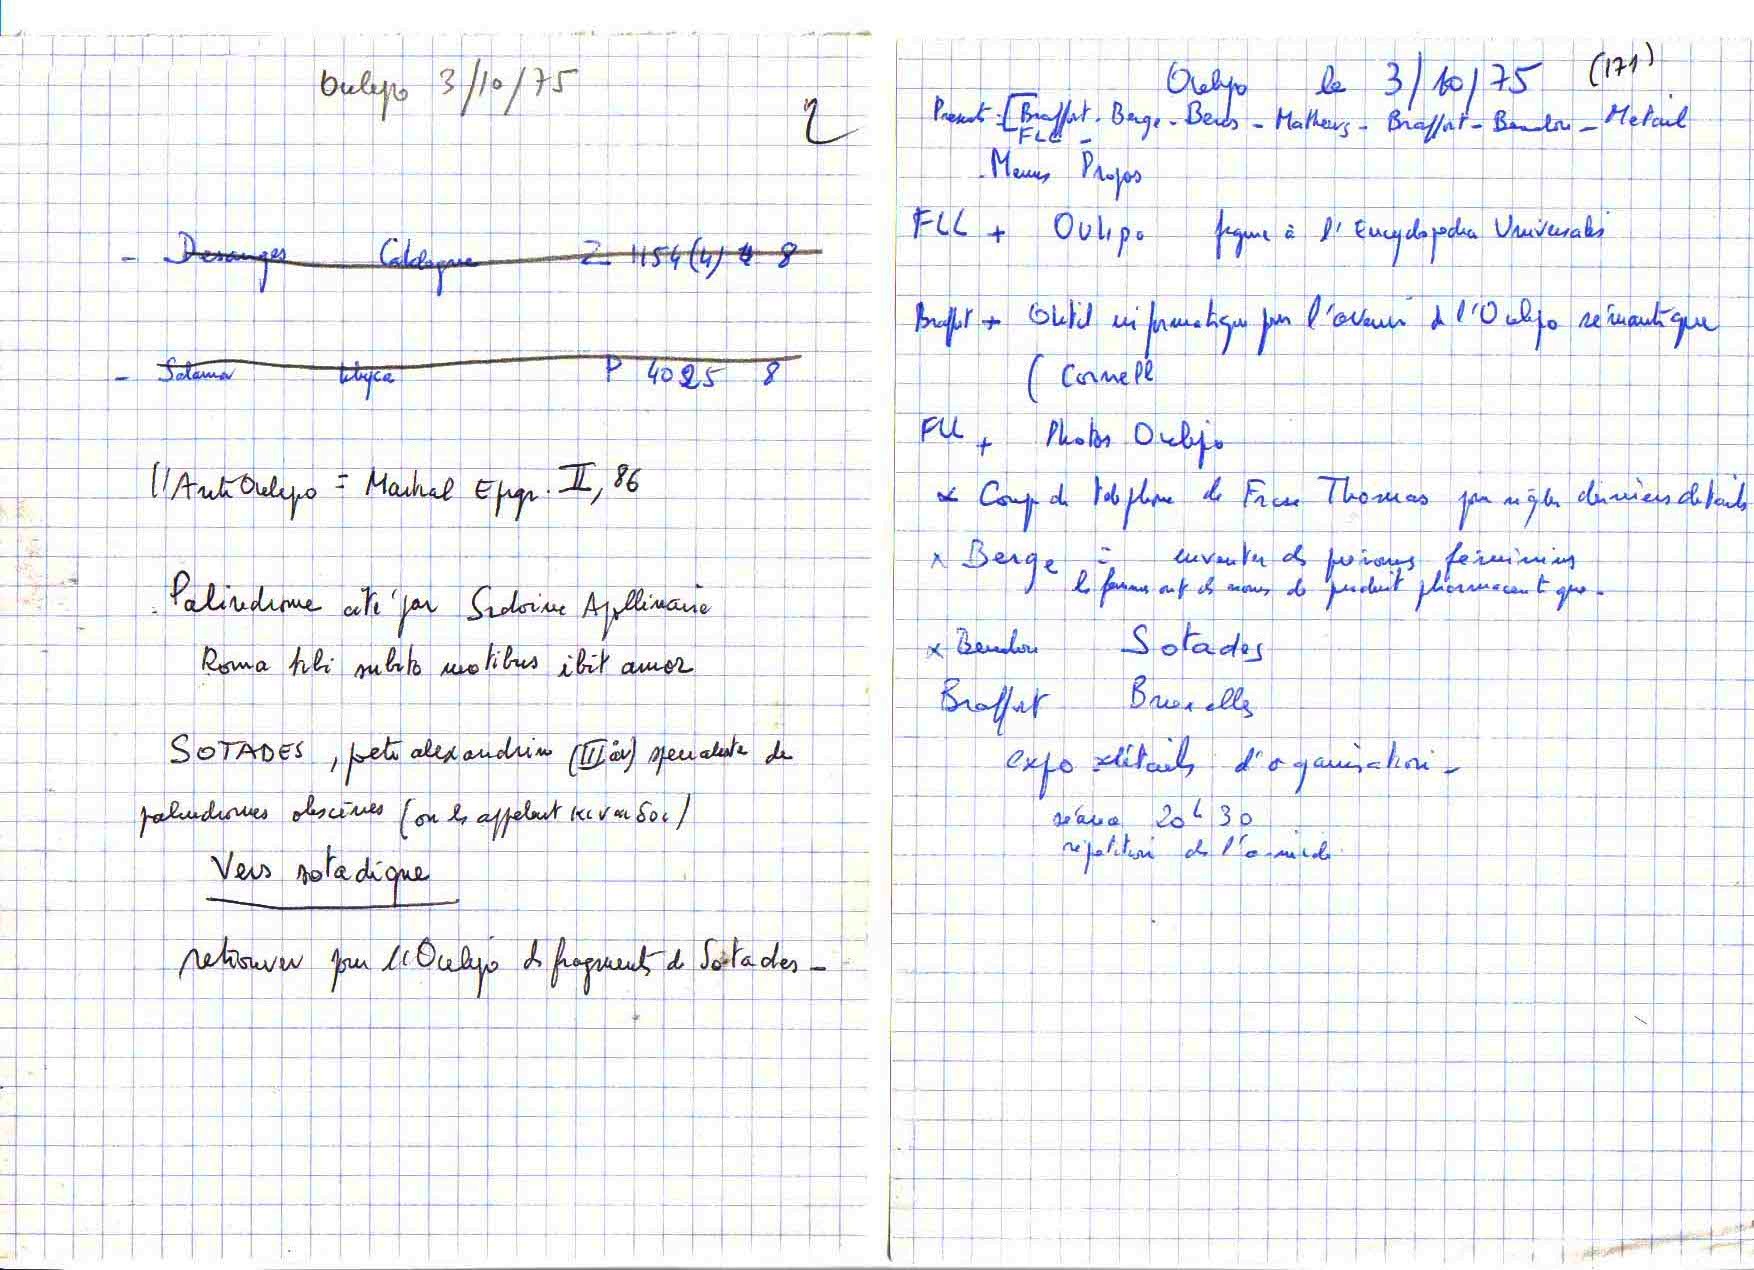 Oulipo 3/10/75
2
- Desanges Catalogue Z 1154 (4) 4 8
- Salama Libyca P 4025 8
l'AntiOulipo = Martial Epigr. II, 86
Palindrome cité par Sidoine Apollinaire
Roma tibi subito motibus ibit amor
SOTADES, poète alexandrin (III av) spécialiste de
palindromes obscènes (on les appelait κιναιδοι)
Vers sotadique
retrouver pour l'Oulipo des fragments de Sotades -
Oulipo le 3/10/75 (171)
Présents: [Braffort - Berge - Bens - Mathews - Braffort - Benabou - Métail
FLL -
- Menus Propos
FLL + Oulipo figure à l'Encyclopedia Universalis
Braffort + Outil informatique pour l'avenir de l'Oulipo sémantique
( Cornell
FLL + Photos Oulipo
x Coup de téléphone de Thomas pour régler derniers détails
x Berge = inventer des prénoms féminins
les femmes ont des noms de produit pharmaceutique -
x Benabou Sotades
Braffort Bruxelles
expo détails d'organisation -
séance 20h30
répétition de